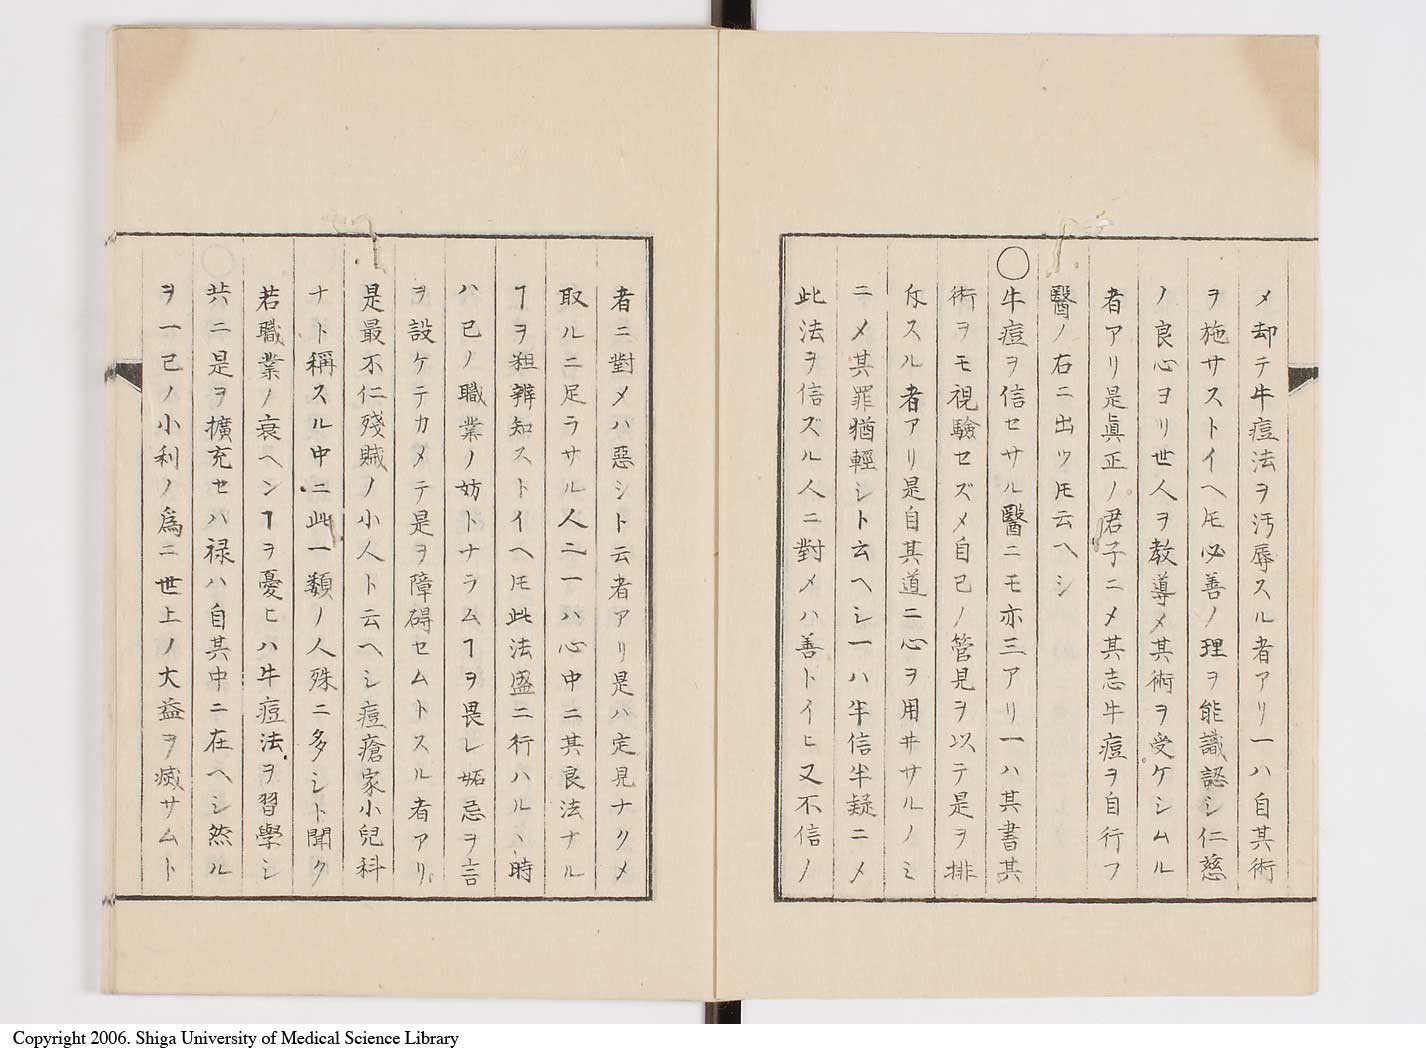 メ却テ牛痘法ヲ汚辱スル者アリ一ハ自其術
ヲ施サストイヘ𪜈必善ノ理ヲ能識認シ仁慈
ノ良心ヨリ世人ヲ教導メ其術ヲ受ケシムル
者アリ是眞正ノ君子ニメ其志牛痘ヲ自行フ
醫ノ右ニ出ツ𪜈云ヘシ
○牛痘ヲ信セサル醫ニモ亦三アリ一ハ其書其
術ヲモ視驗セズメ自己ノ管見ヲ以テ是ヲ排
斥スル者アリ是自其道ニ心ヲ用井サルノミ
ニメ其罪猶輕シト云ヘシ一ハ半信半疑ニメ
此法ヲ信ズル人ニ對メハ善トイヒ又不信ノ
者ニ對メハ惡シト云者アリ是ハ定見ナクメ
取ルニ足ラサル人ニ一ハ心中ニ其良法ナル
ヿヲ粗辨知ストイヘ𪜈此法盛ニ行ハルヽ時
ハ已ノ職業ノ妨トナラムヿヲ畏レ妬忌ヲ言
ヲ設ケテカメテ是ヲ障碍セムトスル者アリ
是最不仁殘賊ノ小人ト云ヘシ痘瘡家小兒科
ナト稱スル中ニ此一類ノ人殊ニ多シト聞ク
若職業ノ衰ヘンヿヲ憂ヒハ牛痘法ヲ習學シ
共ニ是ヲ擴充セハ禄ハ自其中ニ在ヘシ然ル
ヲ一己ノ小利ノ爲ニ世上ノ大益ヲ滅サムト
Copyright 2006. Shiga University of Medical Science Library